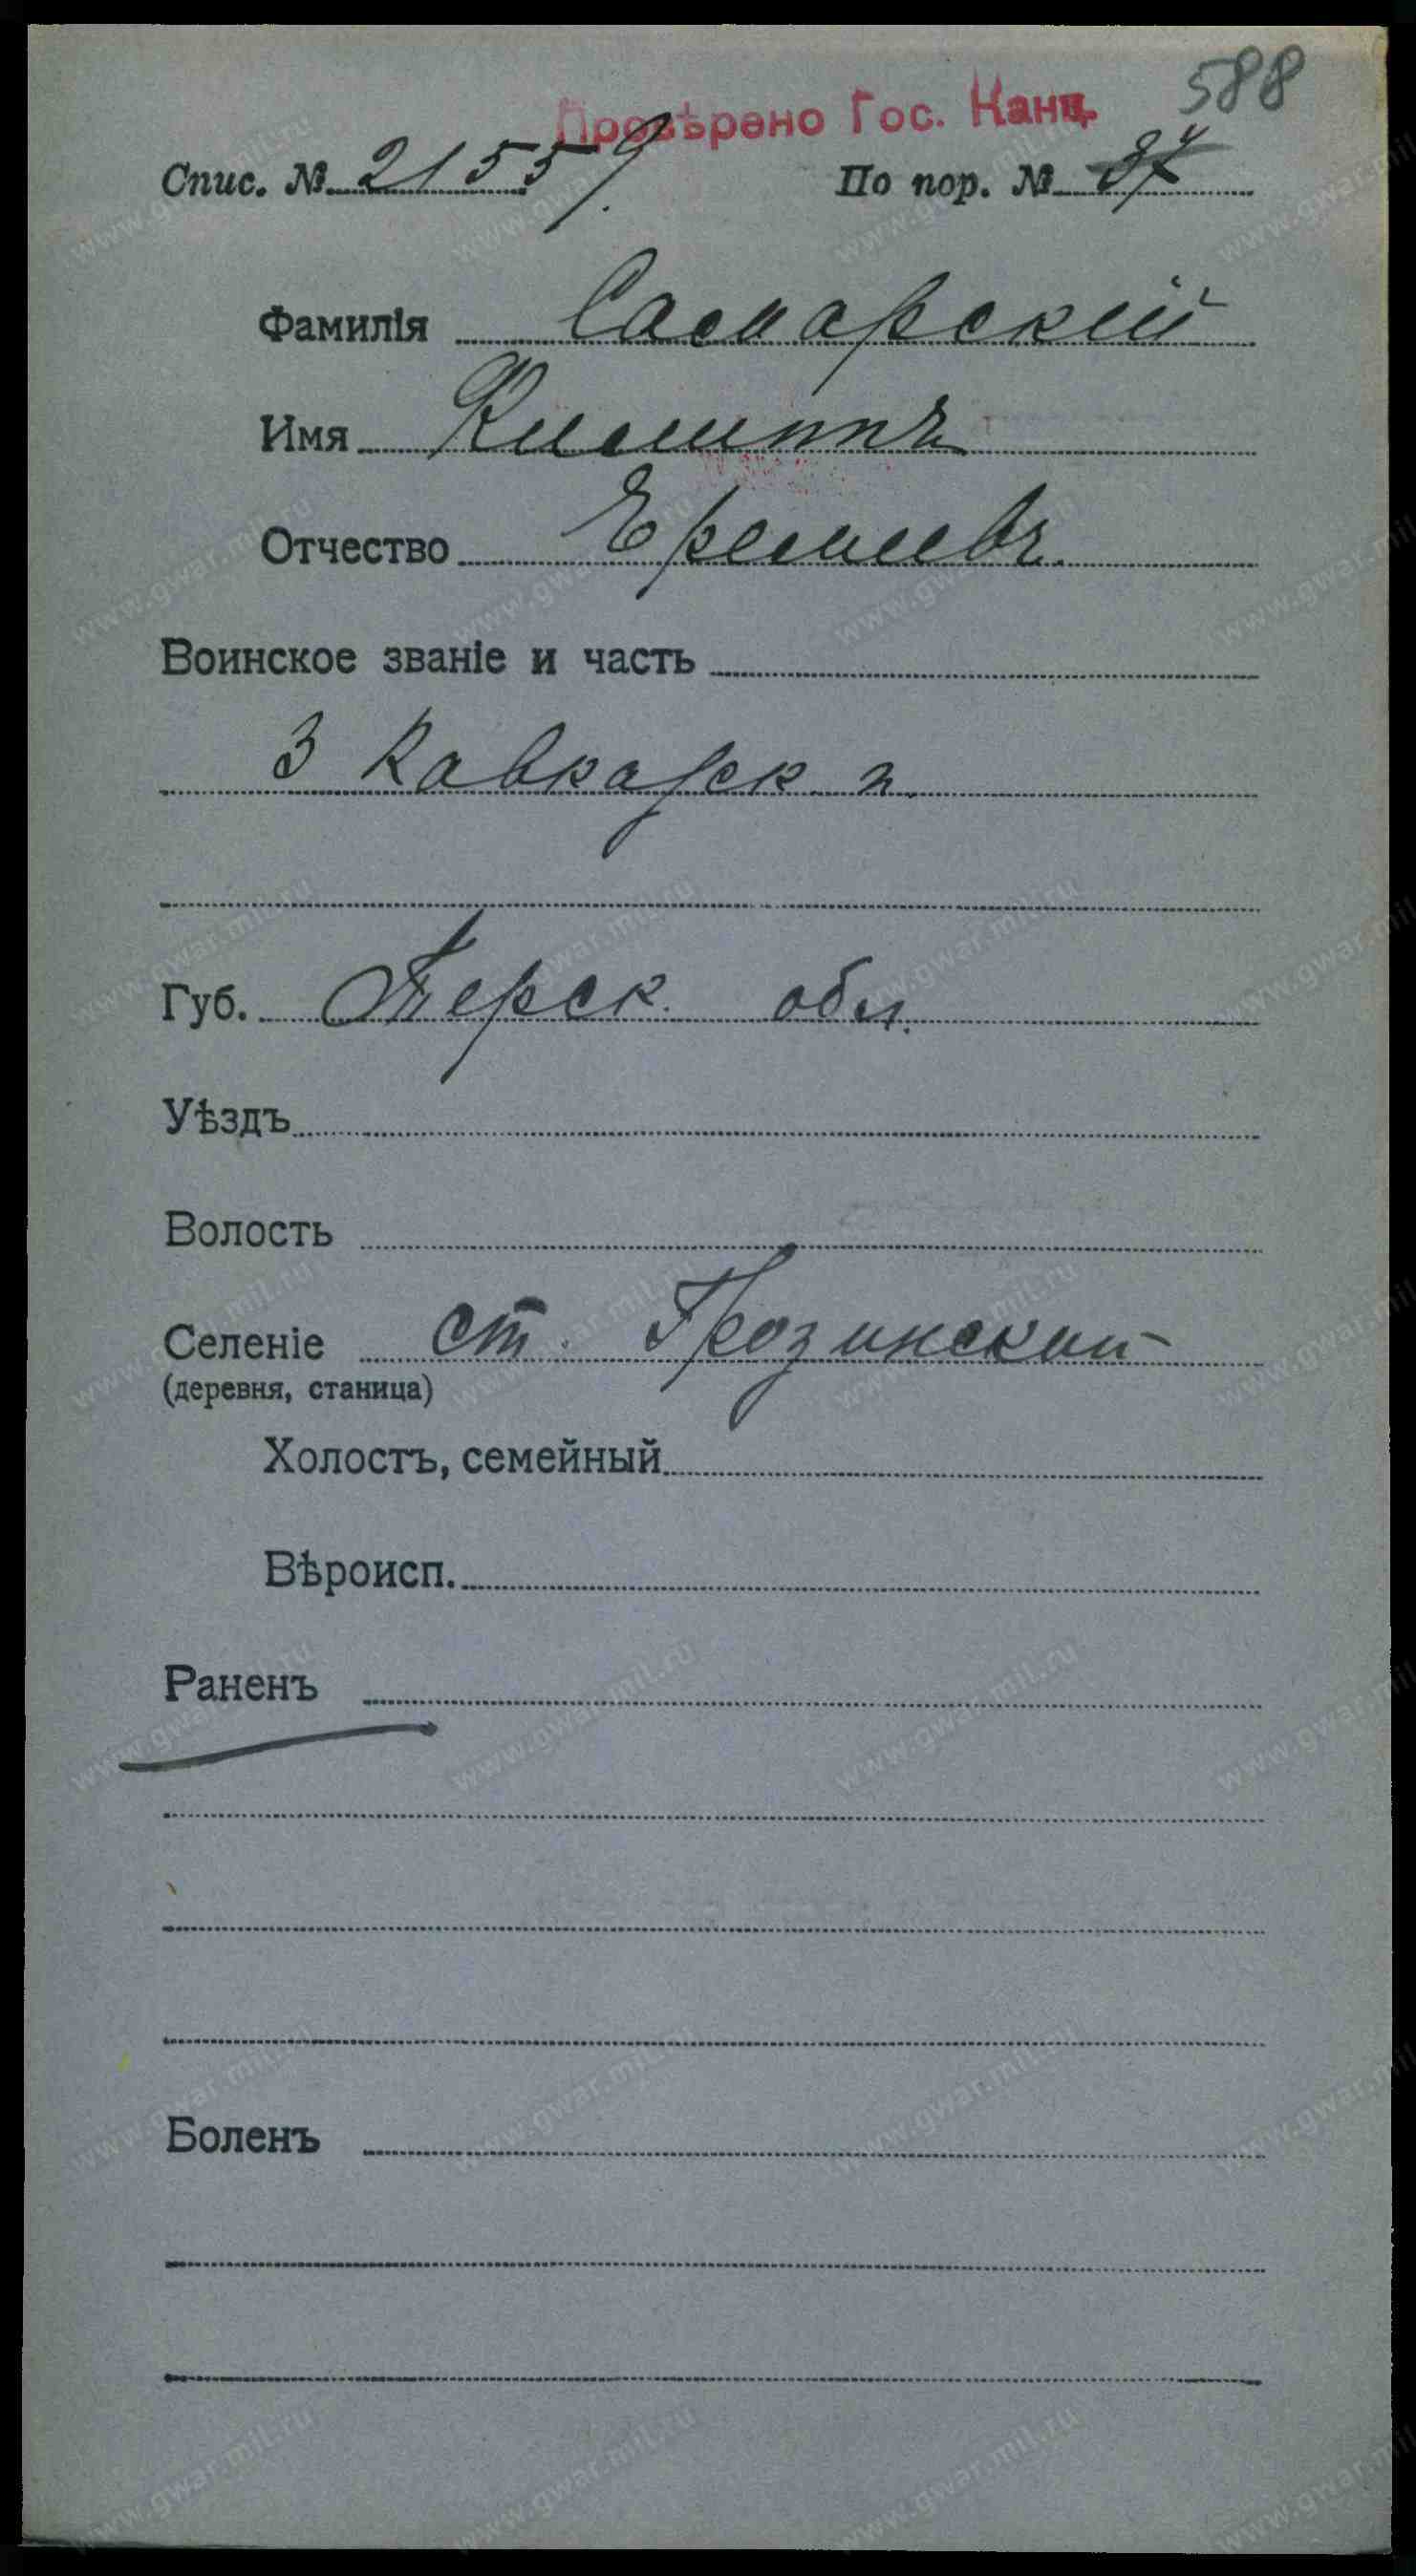 588
Провѣрено Гос. Канц.
Спис. № 21559. По пор. №
Фамилія Самарскій
Имя
Отчество Еремѣевъ.
Воинское званіе и часть
3 Кавказск. п.
Губ. Терск. обл.
Уѣздъ
Волость
Селеніе ст. Грозинский
(деревня, станица)
Холостъ, семейный
Вѣроисп.
Раненъ
Боленъ
www.gwar.mil.ru